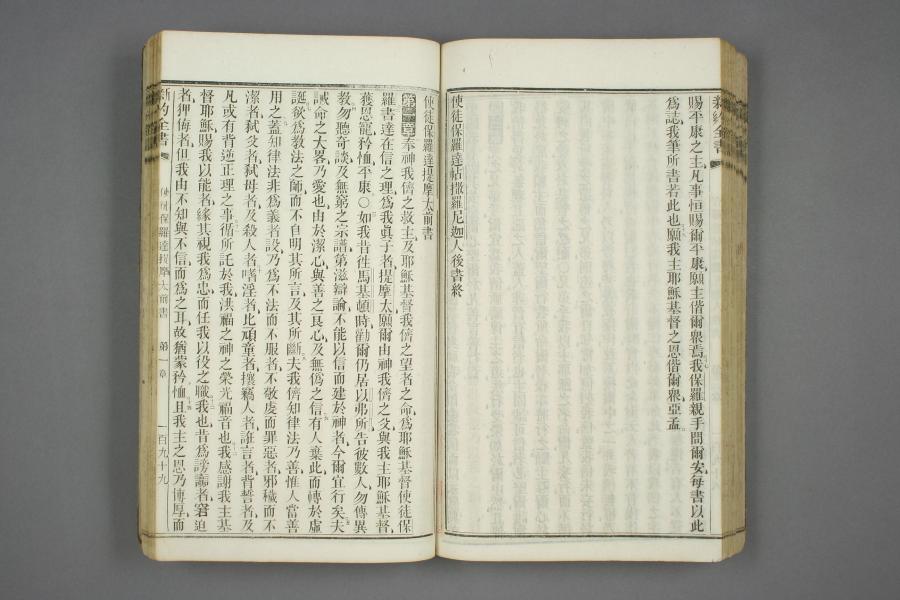 新約全書
賜平康之主凡事恒賜爾平康願主偕爾衆焉我保羅親手問爾安每書以此
爲誌我筆所書若此也願我主耶穌基督之恩偕爾衆亞孟
使徒保羅達帖撒羅尼迦人後書終
使徒保羅達提摩太前書
第一章奉神我儕之救主及耶穌基督我儕之望者之命爲耶穌基督使徒保
羅書達在信之理爲我眞子者提摩太願爾由神我儕之父與我主耶穌基督
獲恩寵矜恤平康○如我昔往馬基頓時勸爾仍居以弗所吿彼數人勿傳異
敎勿聽奇談及無窮之宗譜第滋辯論不能以信而建於神者今爾宜行矣夫
誡命之大畧乃愛也由於潔心與善之良心及無僞之信有人棄此而轉於虛
誕欲爲敎法之師而不自明其所言及其所斷夫我儕知律法乃善惟人當善
用之蓋知律法非爲義者設乃爲不法而不服者不敬虔而罪惡者邪穢而不
潔者弑父者弑母者及殺人者嗜淫者比頑童者攘竊人者誑言者背誓者及
凡或有背逆正理之事循所託於我洪福之神之榮光福音也我感謝我主基
督耶穌賜我以能者緣其視我爲忠而任我以役之職我也昔爲謗讟者窘迫
者狎侮者但我由不知與不信而爲之耳故猶蒙矜恤且我主之恩乃博厚而
新約全書 使徒保羅達提摩太前書 第一章 一百九十九